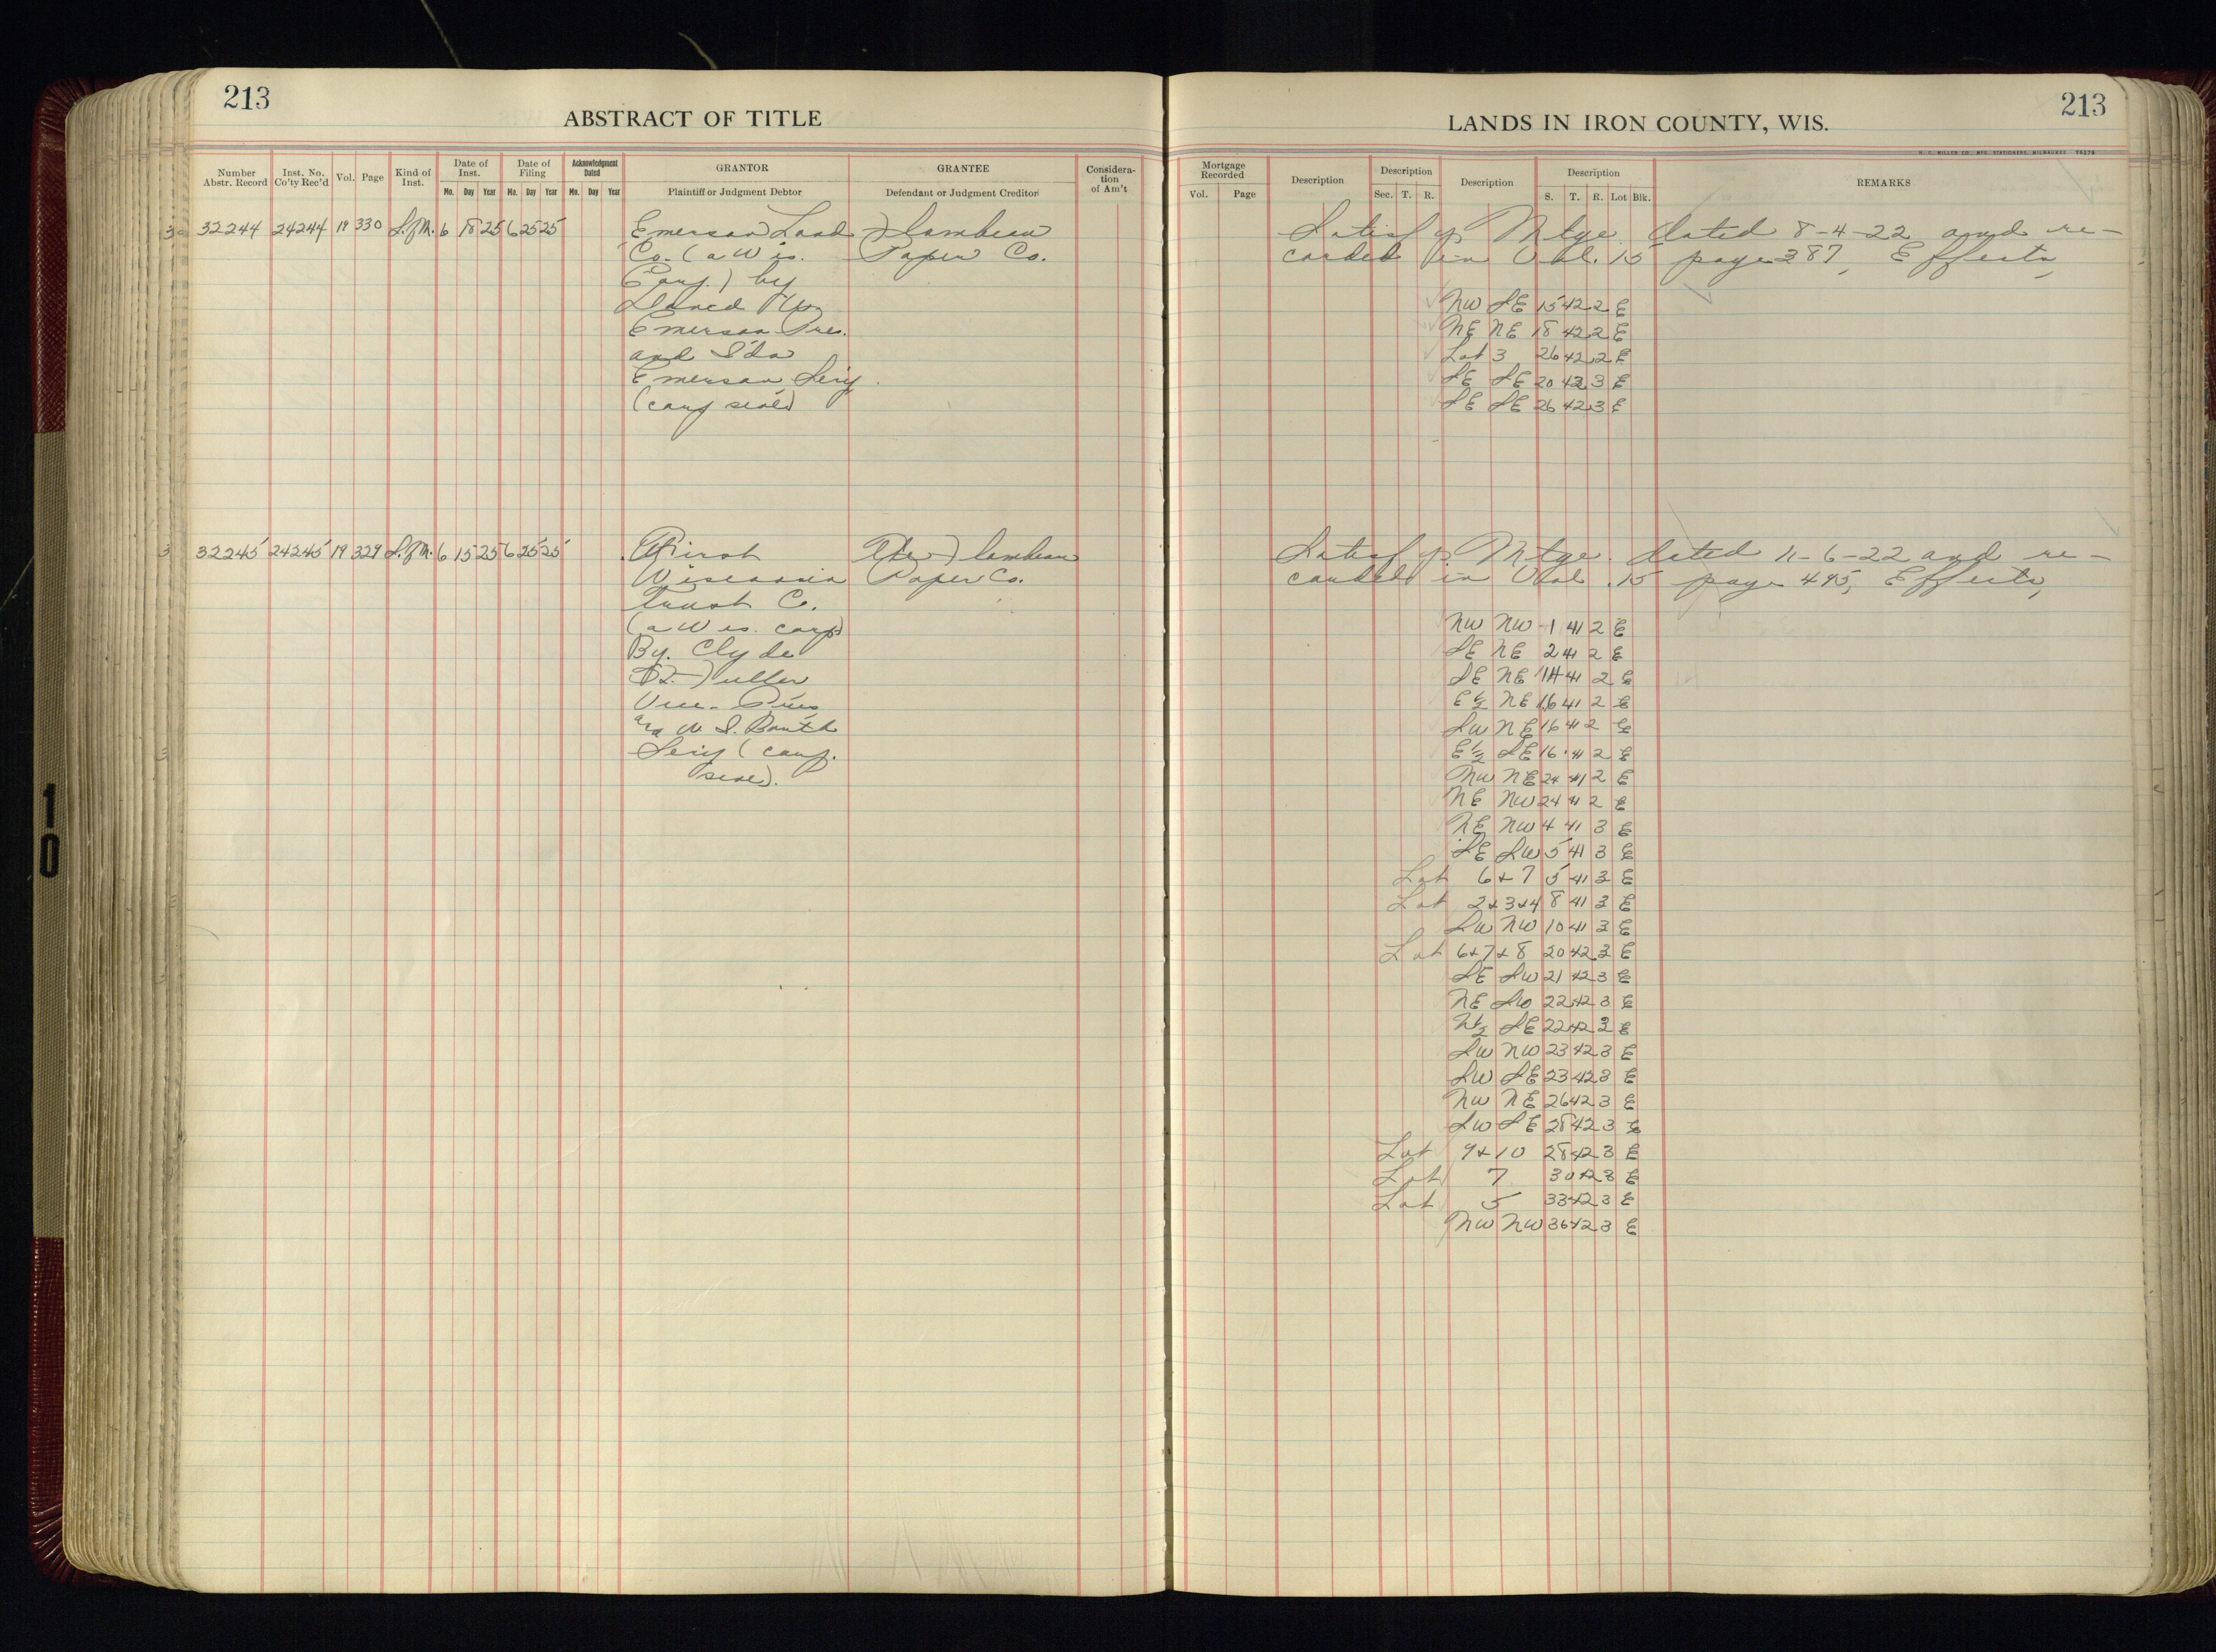 213
ABSTRACT OF TITLE
LANDS IN IRON COUNTY, WIS.
213
H. C. MILLER CO., MFG. STATIONERS, MILWAUKEE 76279
Number Abstr. Record
Inst. No. Co'ty Rec'd
Vol.
Page
Kind of Inst.
Date of Inst.
Mo. Day Year
Date of Filing
Mo. Day Year
Acknowledgment Dated
Mo. Day Year
GRANTOR
Plaintiff or Judgment Debtor
GRANTEE
Defendant or Judgment Creditor
Considera-
tion
of Am't
Mortgage Recorded
Vol. Page
Description
Description
Sec. T. R.
Description
Description
S. T. R. Lot Blk.
REMARKS
32244 24244 19 330 S.of M. 6 18 25 6 25 25
Emerson Land
Co. (a Wis.
Corp.) by
Emerson Pres.
and Ida
Emerson Secy
(corp seal)
Flambeau
Paper Co.
Satisfys Mtge. dated 8-4-22 and re-
corded in Vol. 15 page 387, Effects,
NW SE 15 42 2 E
NE NE 18 42 2 E
Lot 3 26 42 2 E
SE SE 20 42 3 E
SE SE 26 42 3 E
32245 24245 19 329 S.of M. 6 15 25 6 25 25
First
Wisconsin
Trust Co.
(a Wis. corp)
By. Clyde
Fuller
Vice-Pres
and W. S. Booth
Secy (corp.
seal).
The Flambeau
Paper Co.
Satisfys Mtge. dated 11-6-22 and re-
corded in Vol. 15 page 495, Effects,
NW NW 1 41 2 E
SE NE 2 41 2 E
SE NE 14 41 2 E
E½ NE 16 41 2 E
SW NE 16 41 2 E
E½ SE 16 41 2 E
NW NE 24 41 2 E
NE NW 24 41 2 E
NE NW 4 41 3 E
SE SW 5 41 3 E
Lot 6+7 5 41 3 E
Lot 2+3+4 8 41 3 E
SW NW 10 41 3 E
Lot 6+7+8 20 42 3 E
SE SW 21 42 3 E
NE SW 22 42 3 E
N½ SE 22 42 3 E
SW NW 23 42 3 E
SW SE 23 42 3 E
NW NE 26 42 3 E
SW SE 28 42 3 E
Lot 9+10 28 42 3 E
Lot 7 30 42 3 E
Lot 5 33 42 3 E
NW NW 36 42 3 E
10